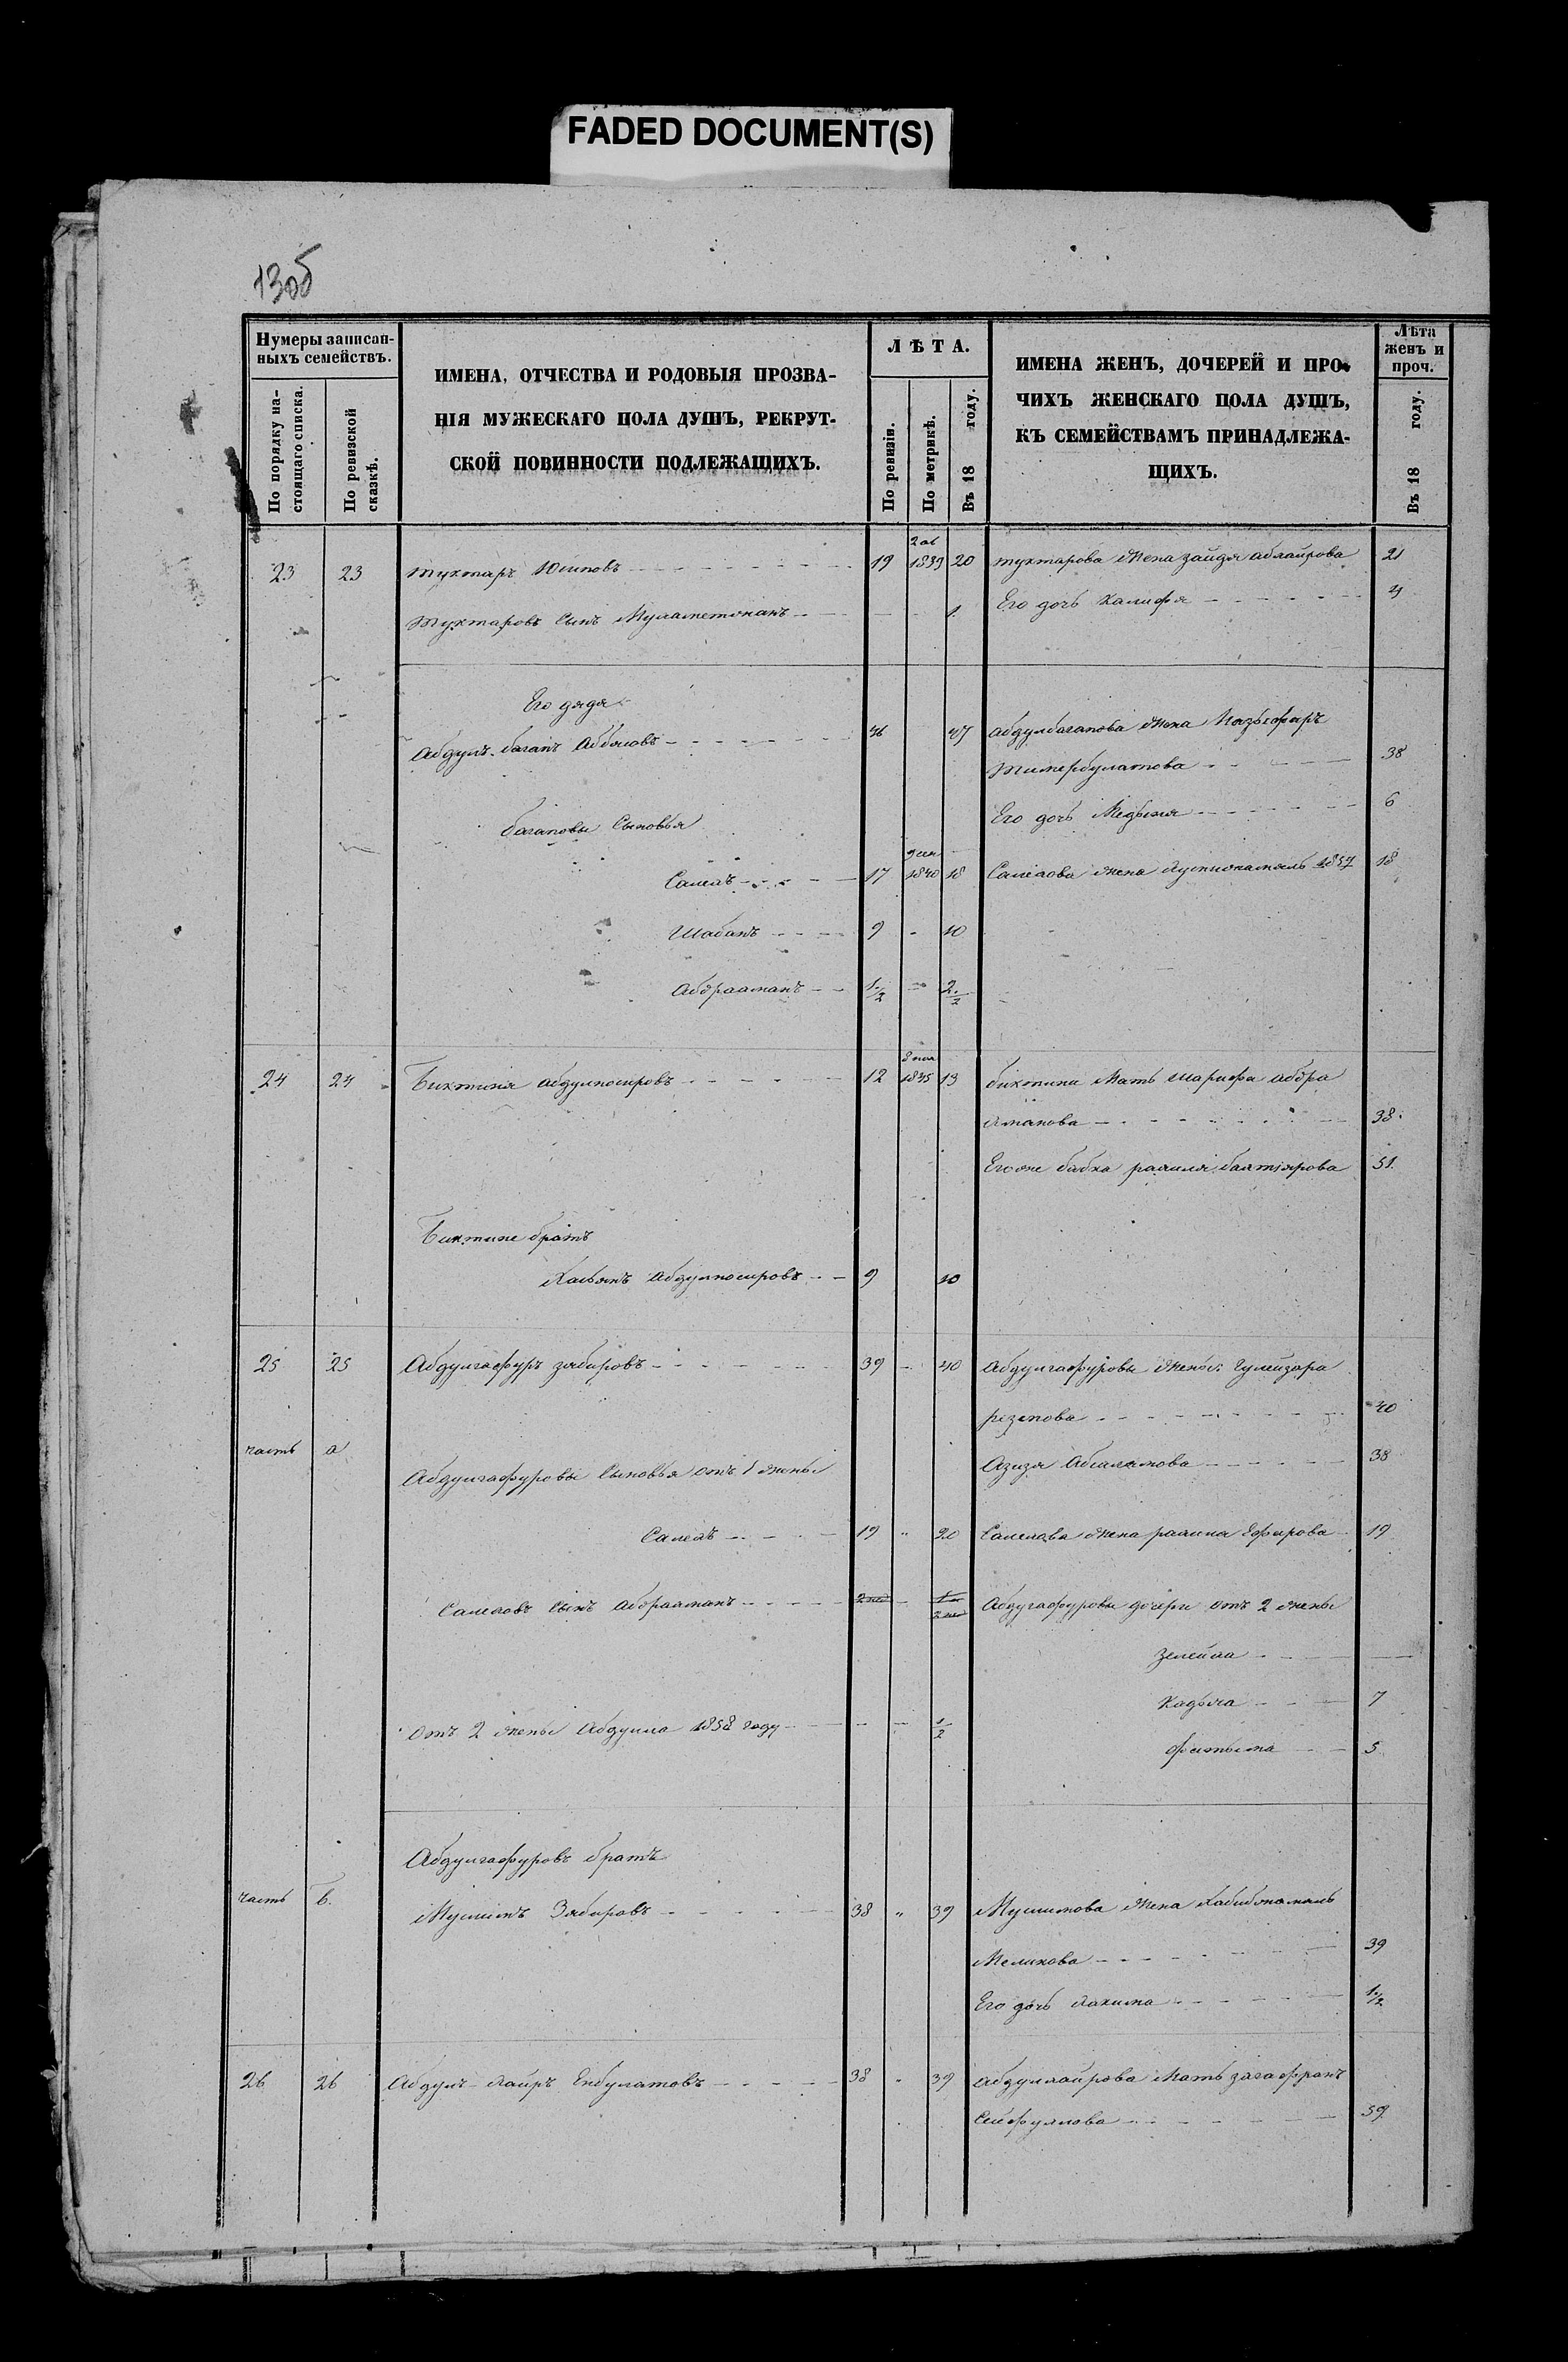 FADED DOCUMENT(S)
130б
Нумеры записан-
ныхъ семействъ.
По порядку на-
стоящаго списка.
По ревизской
сказкѣ.
ИМЕНА, ОТЧЕСТВА И РОДОВЫЯ ПРОЗВА-
НІЯ МУЖЕСКАГО ПОЛА ДУШЪ, РЕКРУТ-
СКОЙ ПОВИННОСТИ ПОДЛЕЖАЩИХЪ.
ЛѢТА.
По ревизіи.
По метрикѣ.
Въ 18 году.
ИМЕНА ЖЕНЪ, ДОЧЕРЕЙ И ПРО-
ЧИХЪ ЖЕНСКАГО ПОЛА ДУШЪ,
КЪ СЕМЕЙСТВАМЪ ПРИНАДЛЕЖА-
ЩИХЪ.
Лѣта
женъ и
проч.
Въ 18 году.
23 23 Мухтаръ Юсиповъ 19 1839 20 мухтарова жена зайдя абхаирова 21
Мухтаровъ сынъ 1. Его дочь Халифя 4
Его дядя
Абдулъ-баганъ Аббясовъ 46 47 абдулбаганова жена
Тимербулатова 38
багановы сыновья Его дочь 6
Салехъ 17 1840 18 Салехова жена 1857 18
Шабанъ 9 - 10
Абдрахманъ 1/2 2/2
24 24 Биктимя абдулносировъ 12 1845 13 биктими мать шарифа абдра
хманова 38.
Его же бабка рахиля бахтіярова 51.
Биктиме братъ
Касьянъ абдулносировъ 9 10
25 25 Абдулгафуръ зябировъ 39 - 40 Абдулгафуровы жены: гулеизара
резепова 40
часть а Азизя Абсалямова 38
Абдулгафуровы сыновья отъ 1 жены
Салехъ 19 " 20 Салехова жена 19
Салеховъ сынъ абдрахманъ Абдугафуровы дочери отъ 2 жены
Зелейха
Отъ 2 жены Абдулла 1858 году 1/2 Кадыча 7
фатыма 5
Абдулгафуровъ братъ
часть б. Муслимъ Зябировъ 38 " 39 Муслимова жена Хабибжамаль
Меликова 39
Его дочь Хакима 1/2
26 26 Абдулъ-хаиръ Енбулатовъ 38 " 39 абдулхаирова мать загафранъ
Сейфулова 59